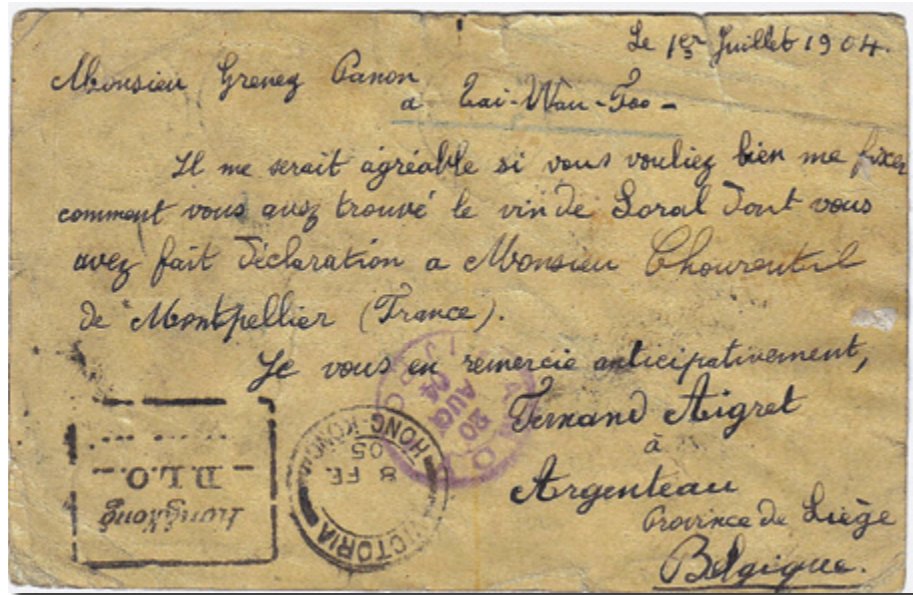 Le 1er Juillet 1904.
Monsieur Grenez Panon
a Tai-Wan-Foo -
Il me serait agréable si vous vouliez bien me fixer
comment vous avez trouvé le vin de Soral dont vous
avez fait déclaration a Monsieur
de Montpellier (France).
Je vous en remercie anticipativement,
Fernand Aigret
à
Argenteau
Province de Liège
Belgique.
20
AUG
04
HONG-KONG
8 FE
05
VICTORIA
HongKong
D.L.O.